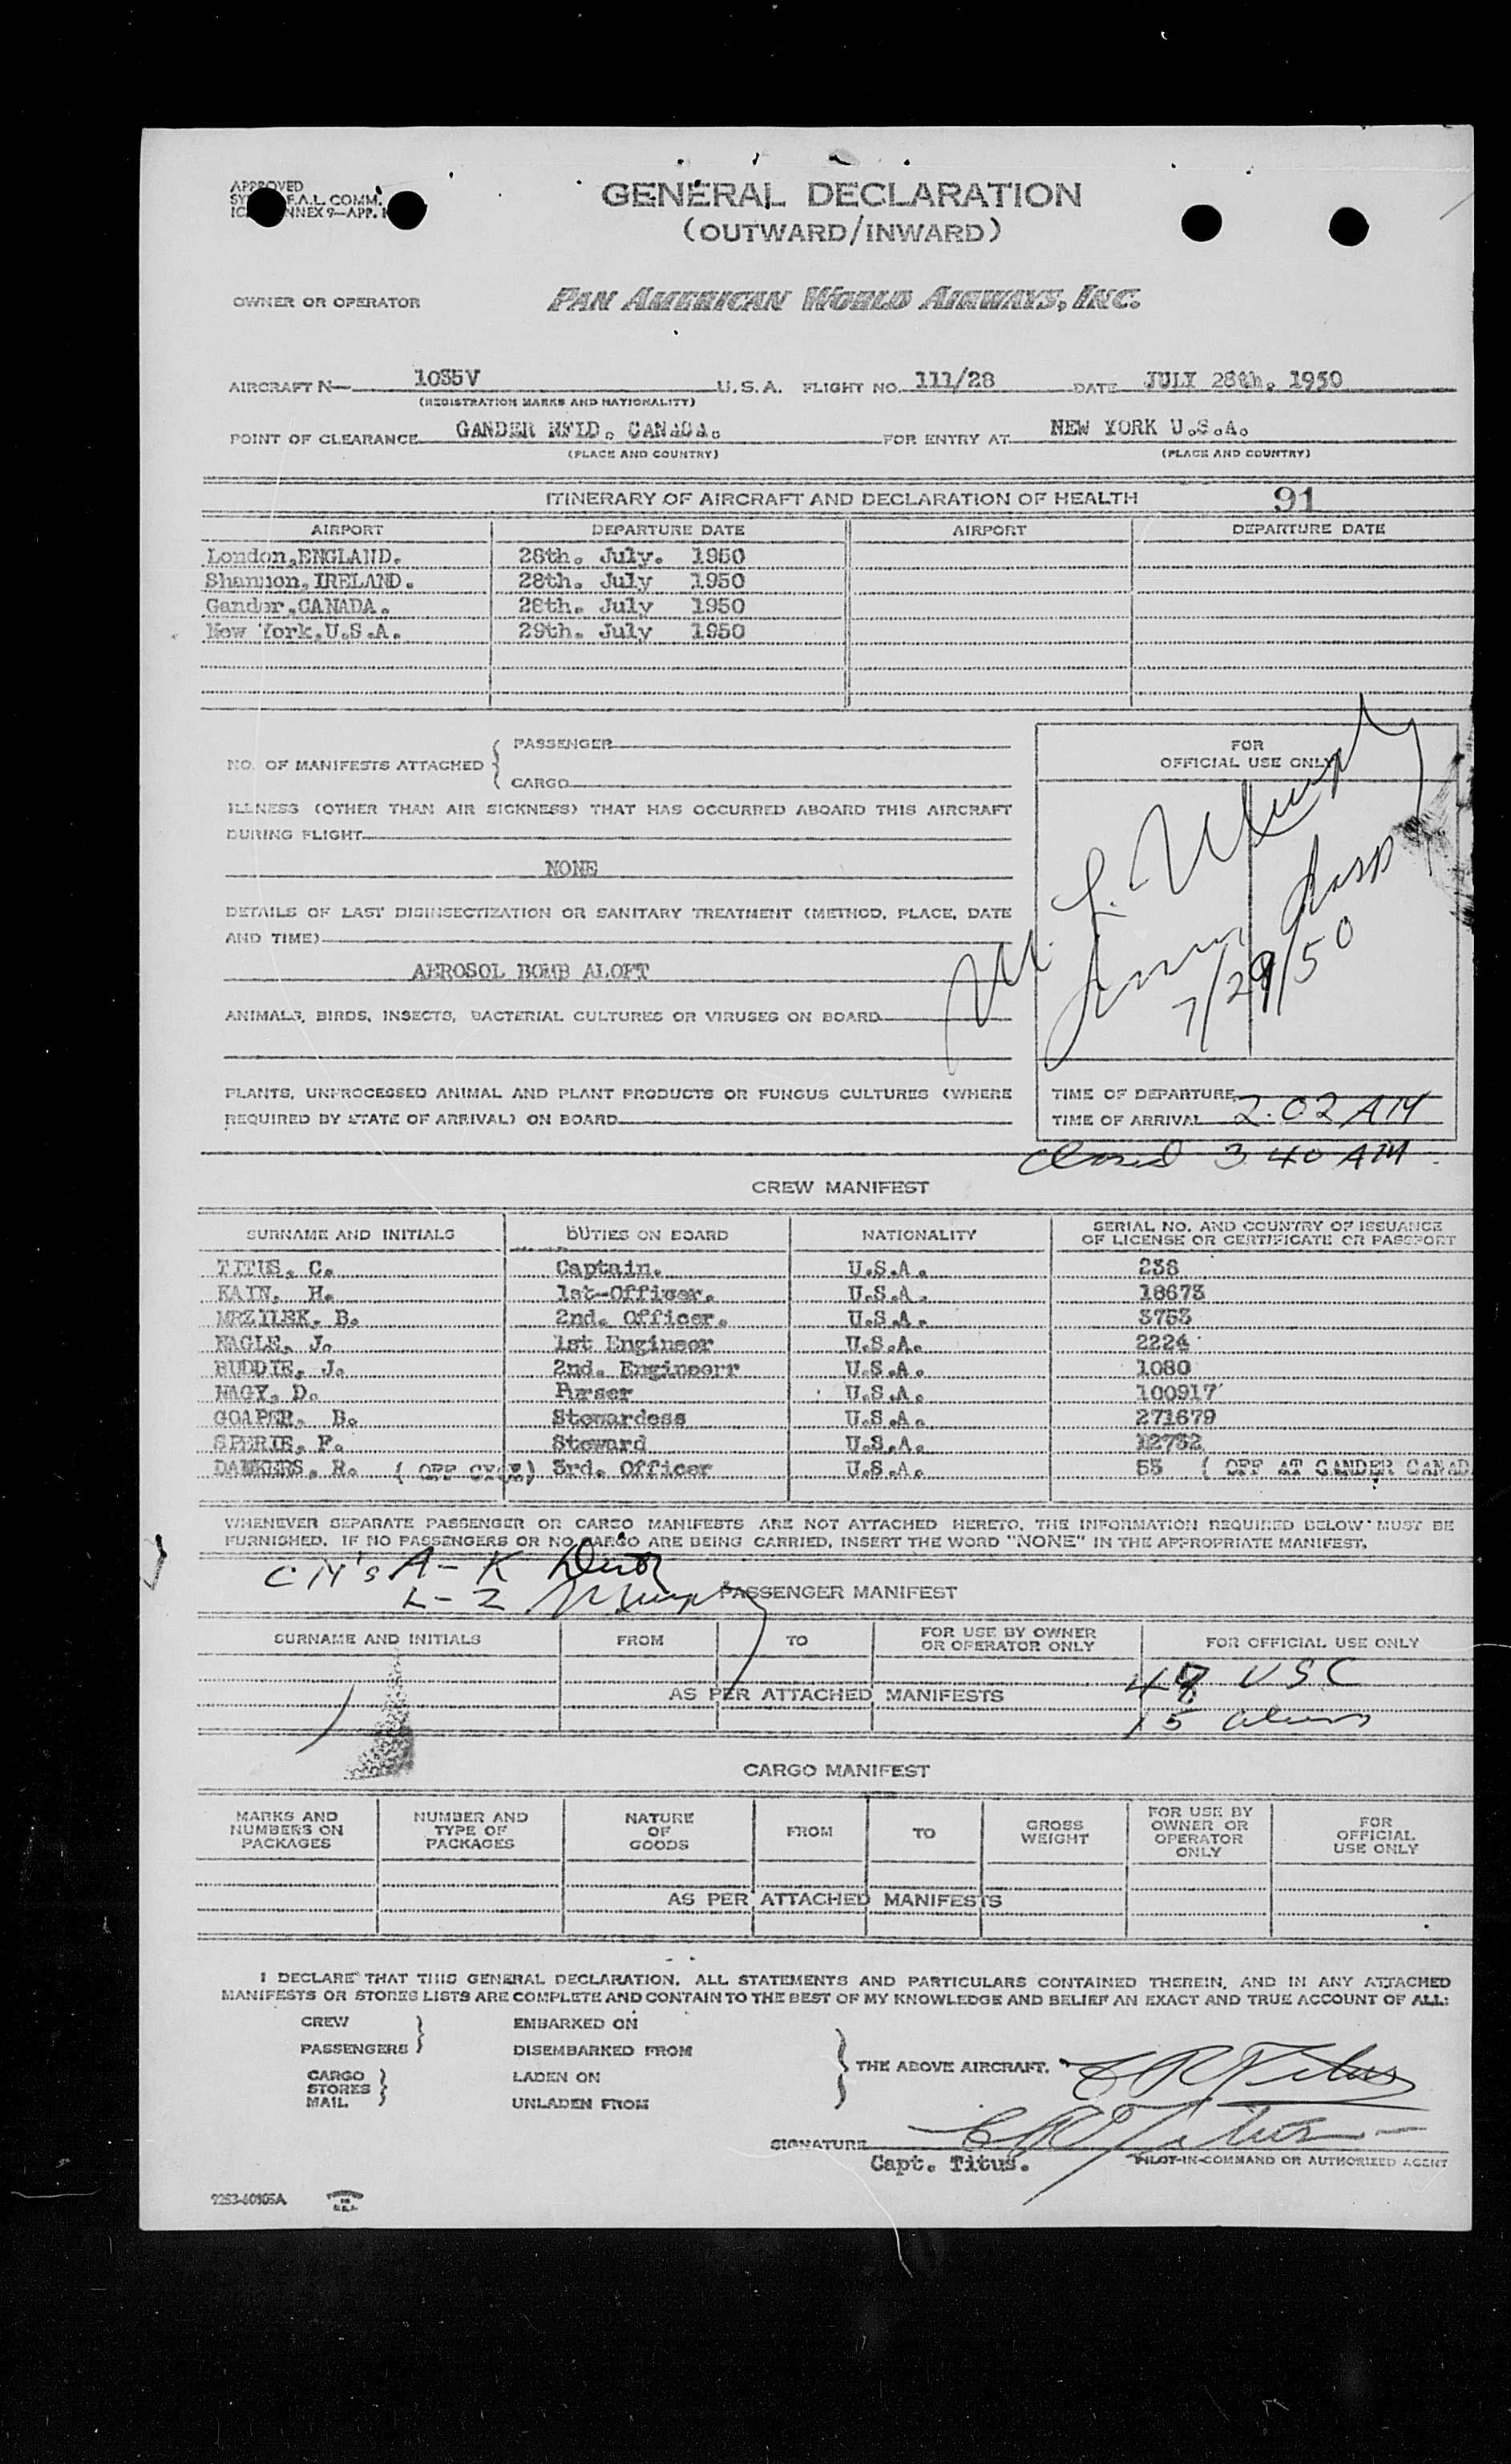 APPROVED
F.A.L. COMM.
ANNEX 9—APP. 1
GENERAL DECLARATION
(OUTWARD/INWARD)
OWNER OR OPERATOR PAN AMERICAN WORLD AIRWAYS, INC.
AIRCRAFT N— 1035V U.S.A. FLIGHT NO. 111/28 DATE JULY 28th. 1950
(REGISTRATION MARKS AND NATIONALITY)
POINT OF CLEARANCE GANDER NFLD. CANADA. FOR ENTRY AT NEW YORK U.S.A.
(PLACE AND COUNTRY) (PLACE AND COUNTRY)
ITINERARY OF AIRCRAFT AND DECLARATION OF HEALTH 91
AIRPORT DEPARTURE DATE AIRPORT DEPARTURE DATE
London,ENGLAND. 28th. July. 1950
Shannon,IRELAND. 28th. July 1950
Gander,CANADA. 28th. July 1950
New York,U.S.A. 29th. July 1950
NO. OF MANIFESTS ATTACHED { PASSENGER
CARGO
FOR
OFFICIAL USE ONLY
ILLNESS (OTHER THAN AIR SICKNESS) THAT HAS OCCURRED ABOARD THIS AIRCRAFT
DURING FLIGHT
NONE
DETAILS OF LAST DISINSECTIZATION OR SANITARY TREATMENT (METHOD, PLACE, DATE
AND TIME)
AEROSOL BOMB ALOFT
7/29/50
ANIMALS, BIRDS, INSECTS, BACTERIAL CULTURES OR VIRUSES ON BOARD
PLANTS, UNPROCESSED ANIMAL AND PLANT PRODUCTS OR FUNGUS CULTURES (WHERE
REQUIRED BY STATE OF ARRIVAL) ON BOARD
TIME OF DEPARTURE
TIME OF ARRIVAL 2:02 AM
Closed 3 40 AM
CREW MANIFEST
SURNAME AND INITIALS DUTIES ON BOARD NATIONALITY SERIAL NO. AND COUNTRY OF ISSUANCE
OF LICENSE OR CERTIFICATE OR PASSPORT
TITUS, C. Captain. U.S.A. 238
KAIN, H. 1st-Officer. U.S.A. 18673
MRZILEK, B. 2nd. Officer. U.S.A. 3753
NAGLE, J. 1st Engineer U.S.A. 2224
BUDDIE, J. 2nd. Engineerr U.S.A. 1080
NAGY, D. Purser U.S.A. 100917
GOAPER, B. Stewardess U.S.A. 271679
SPERIE, F. Steward U.S.A. 12732
DANKERS, R. 3rd. Officer U.S.A. 53 ( OFF AT GANDER CANAD
WHENEVER SEPARATE PASSENGER OR CARGO MANIFESTS ARE NOT ATTACHED HERETO, THE INFORMATION REQUIRED BELOW MUST BE
FURNISHED. IF NO PASSENGERS OR NO CARGO ARE BEING CARRIED, INSERT THE WORD "NONE" IN THE APPROPRIATE MANIFEST.
A - K
L - Z
PASSENGER MANIFEST
SURNAME AND INITIALS FROM TO FOR USE BY OWNER
OR OPERATOR ONLY FOR OFFICIAL USE ONLY
USC
AS PER ATTACHED MANIFESTS
15 aliens
CARGO MANIFEST
MARKS AND
NUMBERS ON
PACKAGES NUMBER AND
TYPE OF
PACKAGES NATURE
OF
GOODS FROM TO GROSS
WEIGHT FOR USE BY
OWNER OR
OPERATOR
ONLY FOR
OFFICIAL
USE ONLY
AS PER ATTACHED MANIFESTS
I DECLARE THAT THIS GENERAL DECLARATION, ALL STATEMENTS AND PARTICULARS CONTAINED THEREIN, AND IN ANY ATTACHED
MANIFESTS OR STORES LISTS ARE COMPLETE AND CONTAIN TO THE BEST OF MY KNOWLEDGE AND BELIEF AN EXACT AND TRUE ACCOUNT OF ALL:
CREW EMBARKED ON
PASSENGERS DISEMBARKED FROM
CARGO
STORES
MAIL LADEN ON
UNLADEN FROM
THE ABOVE AIRCRAFT. C R Titus
SIGNATURE C R Titus
Capt. Titus. PILOT-IN-COMMAND OR AUTHORIZED AGENT